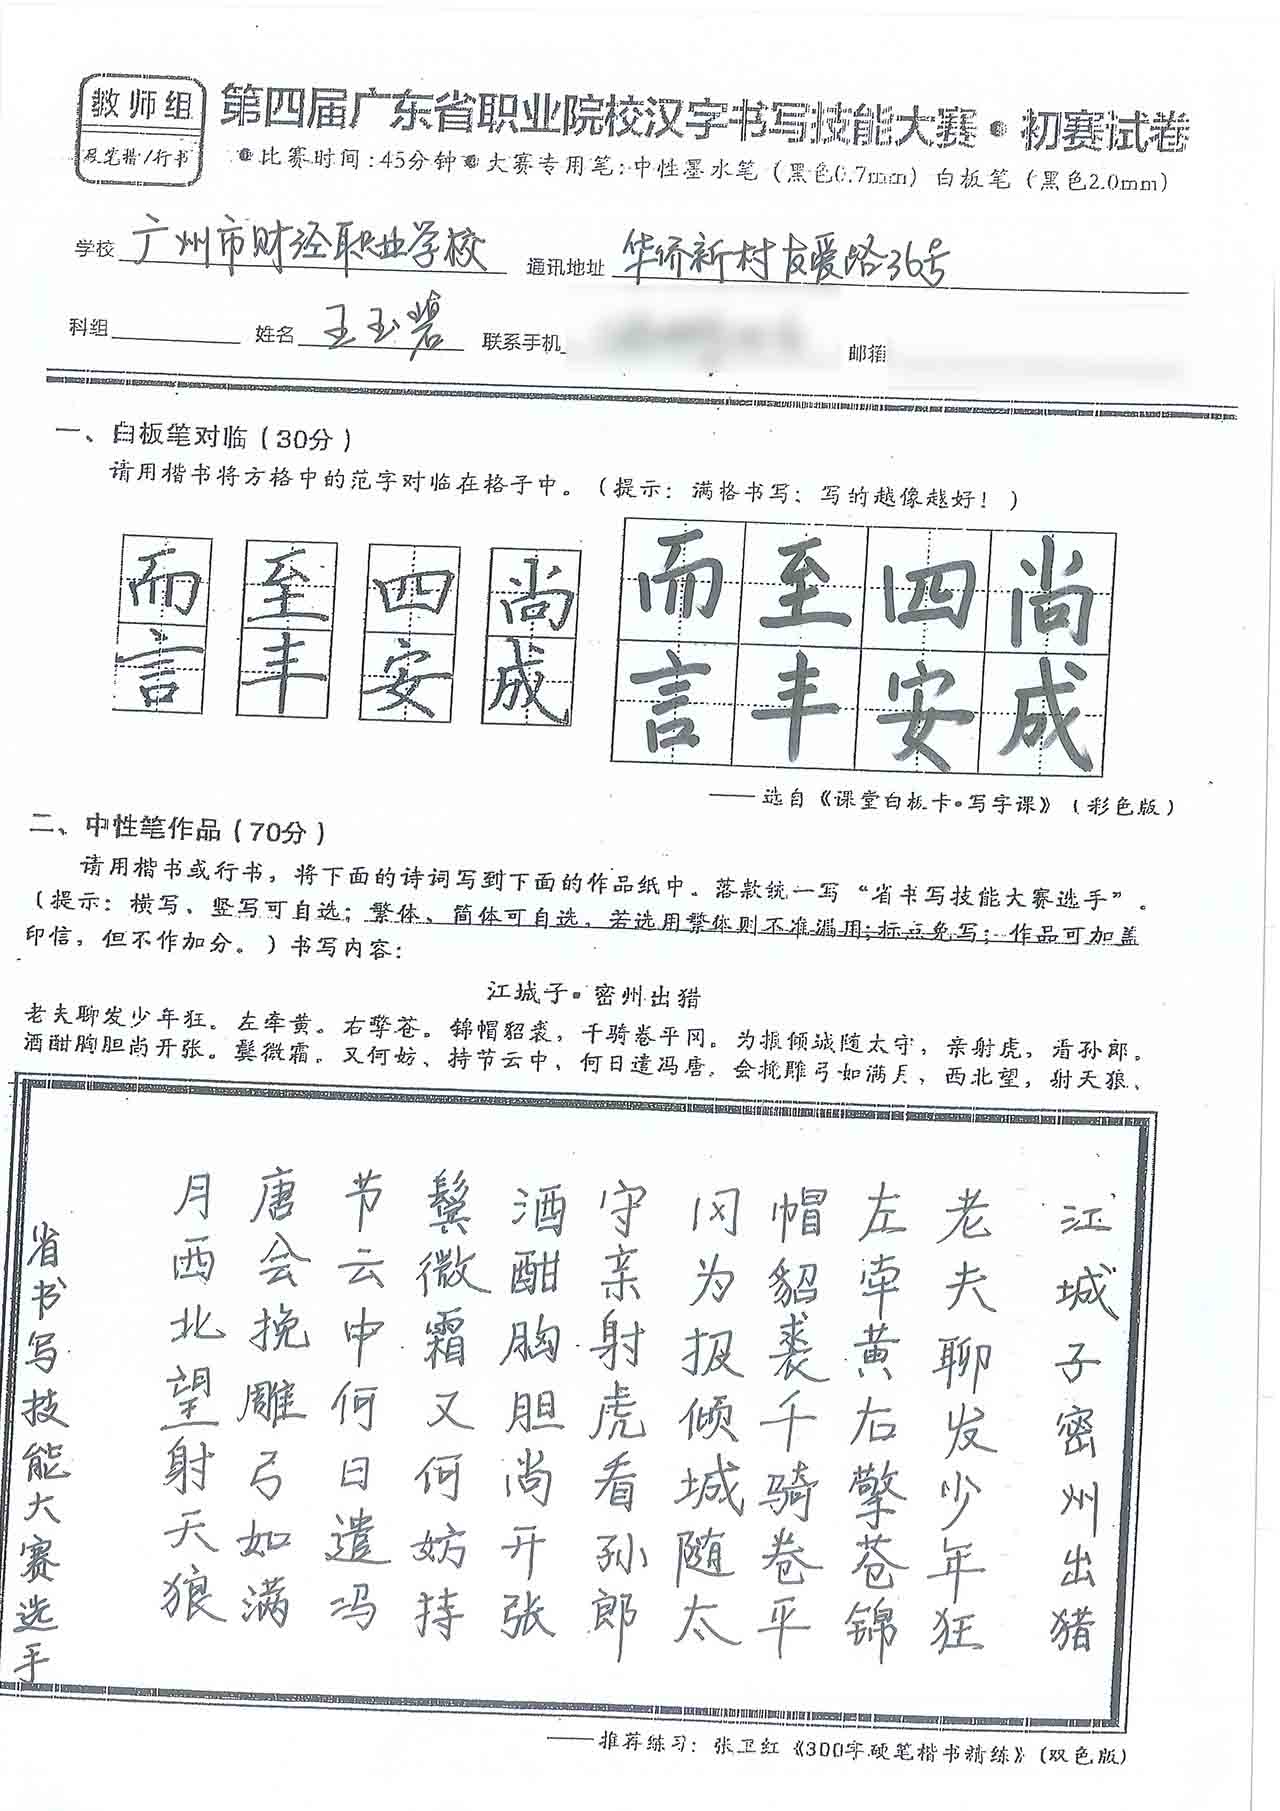 教师组
硬笔楷/行书
第四届广东省职业院校汉字书写技能大赛·初赛试卷
●比赛时间:45分钟●大赛专用笔:中性墨水笔（黑色0.7mm）白板笔（黑色2.0mm）
学校 广州市财经职业学校 通讯地址 华侨新村友爱路36号
科组 姓名 王玉碧 联系手机 邮箱
一、白板笔对临（30分）
请用楷书将方格中的范字对临在格子中。（提示：满格书写；写的越像越好！）
而 至 四 尚 而 至 四 尚
言 丰 安 成 言 丰 安 成
——选自《课堂白板卡·写字课》（彩色版）
二、中性笔作品（70分）
请用楷书或行书，将下面的诗词写到下面的作品纸中。落款统一写“省书写技能大赛选手”。
（提示：横写、竖写可自选；繁体、简体可自选，若选用繁体则不准漏用；标点免写；作品可加盖
印信，但不作加分。）书写内容：
江城子·密州出猎
老夫聊发少年狂。左牵黄。右擎苍。锦帽貂裘，千骑卷平冈。为报倾城随太守，亲射虎，看孙郎。
酒酣胸胆尚开张。鬓微霜。又何妨、持节云中，何日遣冯唐，会挽雕弓如满月、西北望，射天狼、
江城子密州出猎
老夫聊发少年狂
左牵黄右擎苍锦
帽貂裘千骑卷平
冈为报倾城随太
守亲射虎看孙郎
酒酣胸胆尚开张
鬓微霜又何妨持
节云中何日遣冯
唐会挽雕弓如满
月西北望射天狼
省书写技能大赛选手
——推荐练习：张卫红《300字硬笔楷书精练》（双色版）